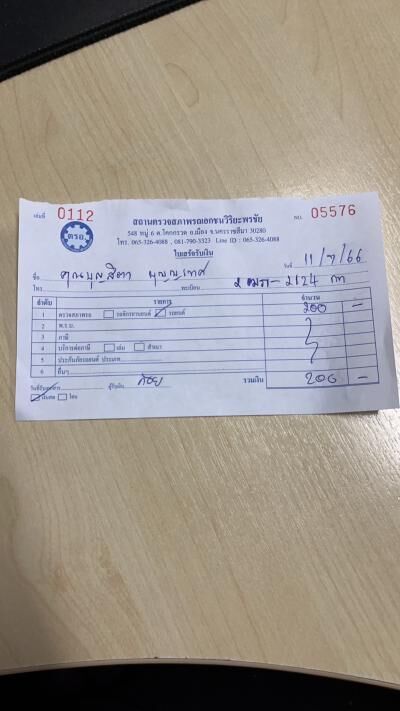 เล่มที่ 0112
NO. 05576
ตรอ.
สถานตรวจสภาพรถเอกชนวิริยะพรชัย
548 หมู่ 6 ต.โคกกรวด อ.เมือง จ.นครราชสีมา 30280
โทร. 065-326-4088 , 081-790-3323 Line ID : 065-326-4088
ใบเสร็จรับเงิน
วันที่ 11/7/66
ชื่อ คุณบุญสิตา บุญญเทศ
โทร. ทะเบียน 2124 กท
ลำดับ รายการ จำนวน
1 ตรวจสภาพรถ รถจักรยานยนต์ รถยนต์ 200 -
2 พ.ร.บ.
3 ภาษี
4 บริการต่อภาษี เล่ม สำเนา
5 ประกันภัยรถยนต์ ประเภท
6 อื่นๆ
รวมเงิน 200 -
ผู้รับเงิน ก้อย
เงินสด โอน